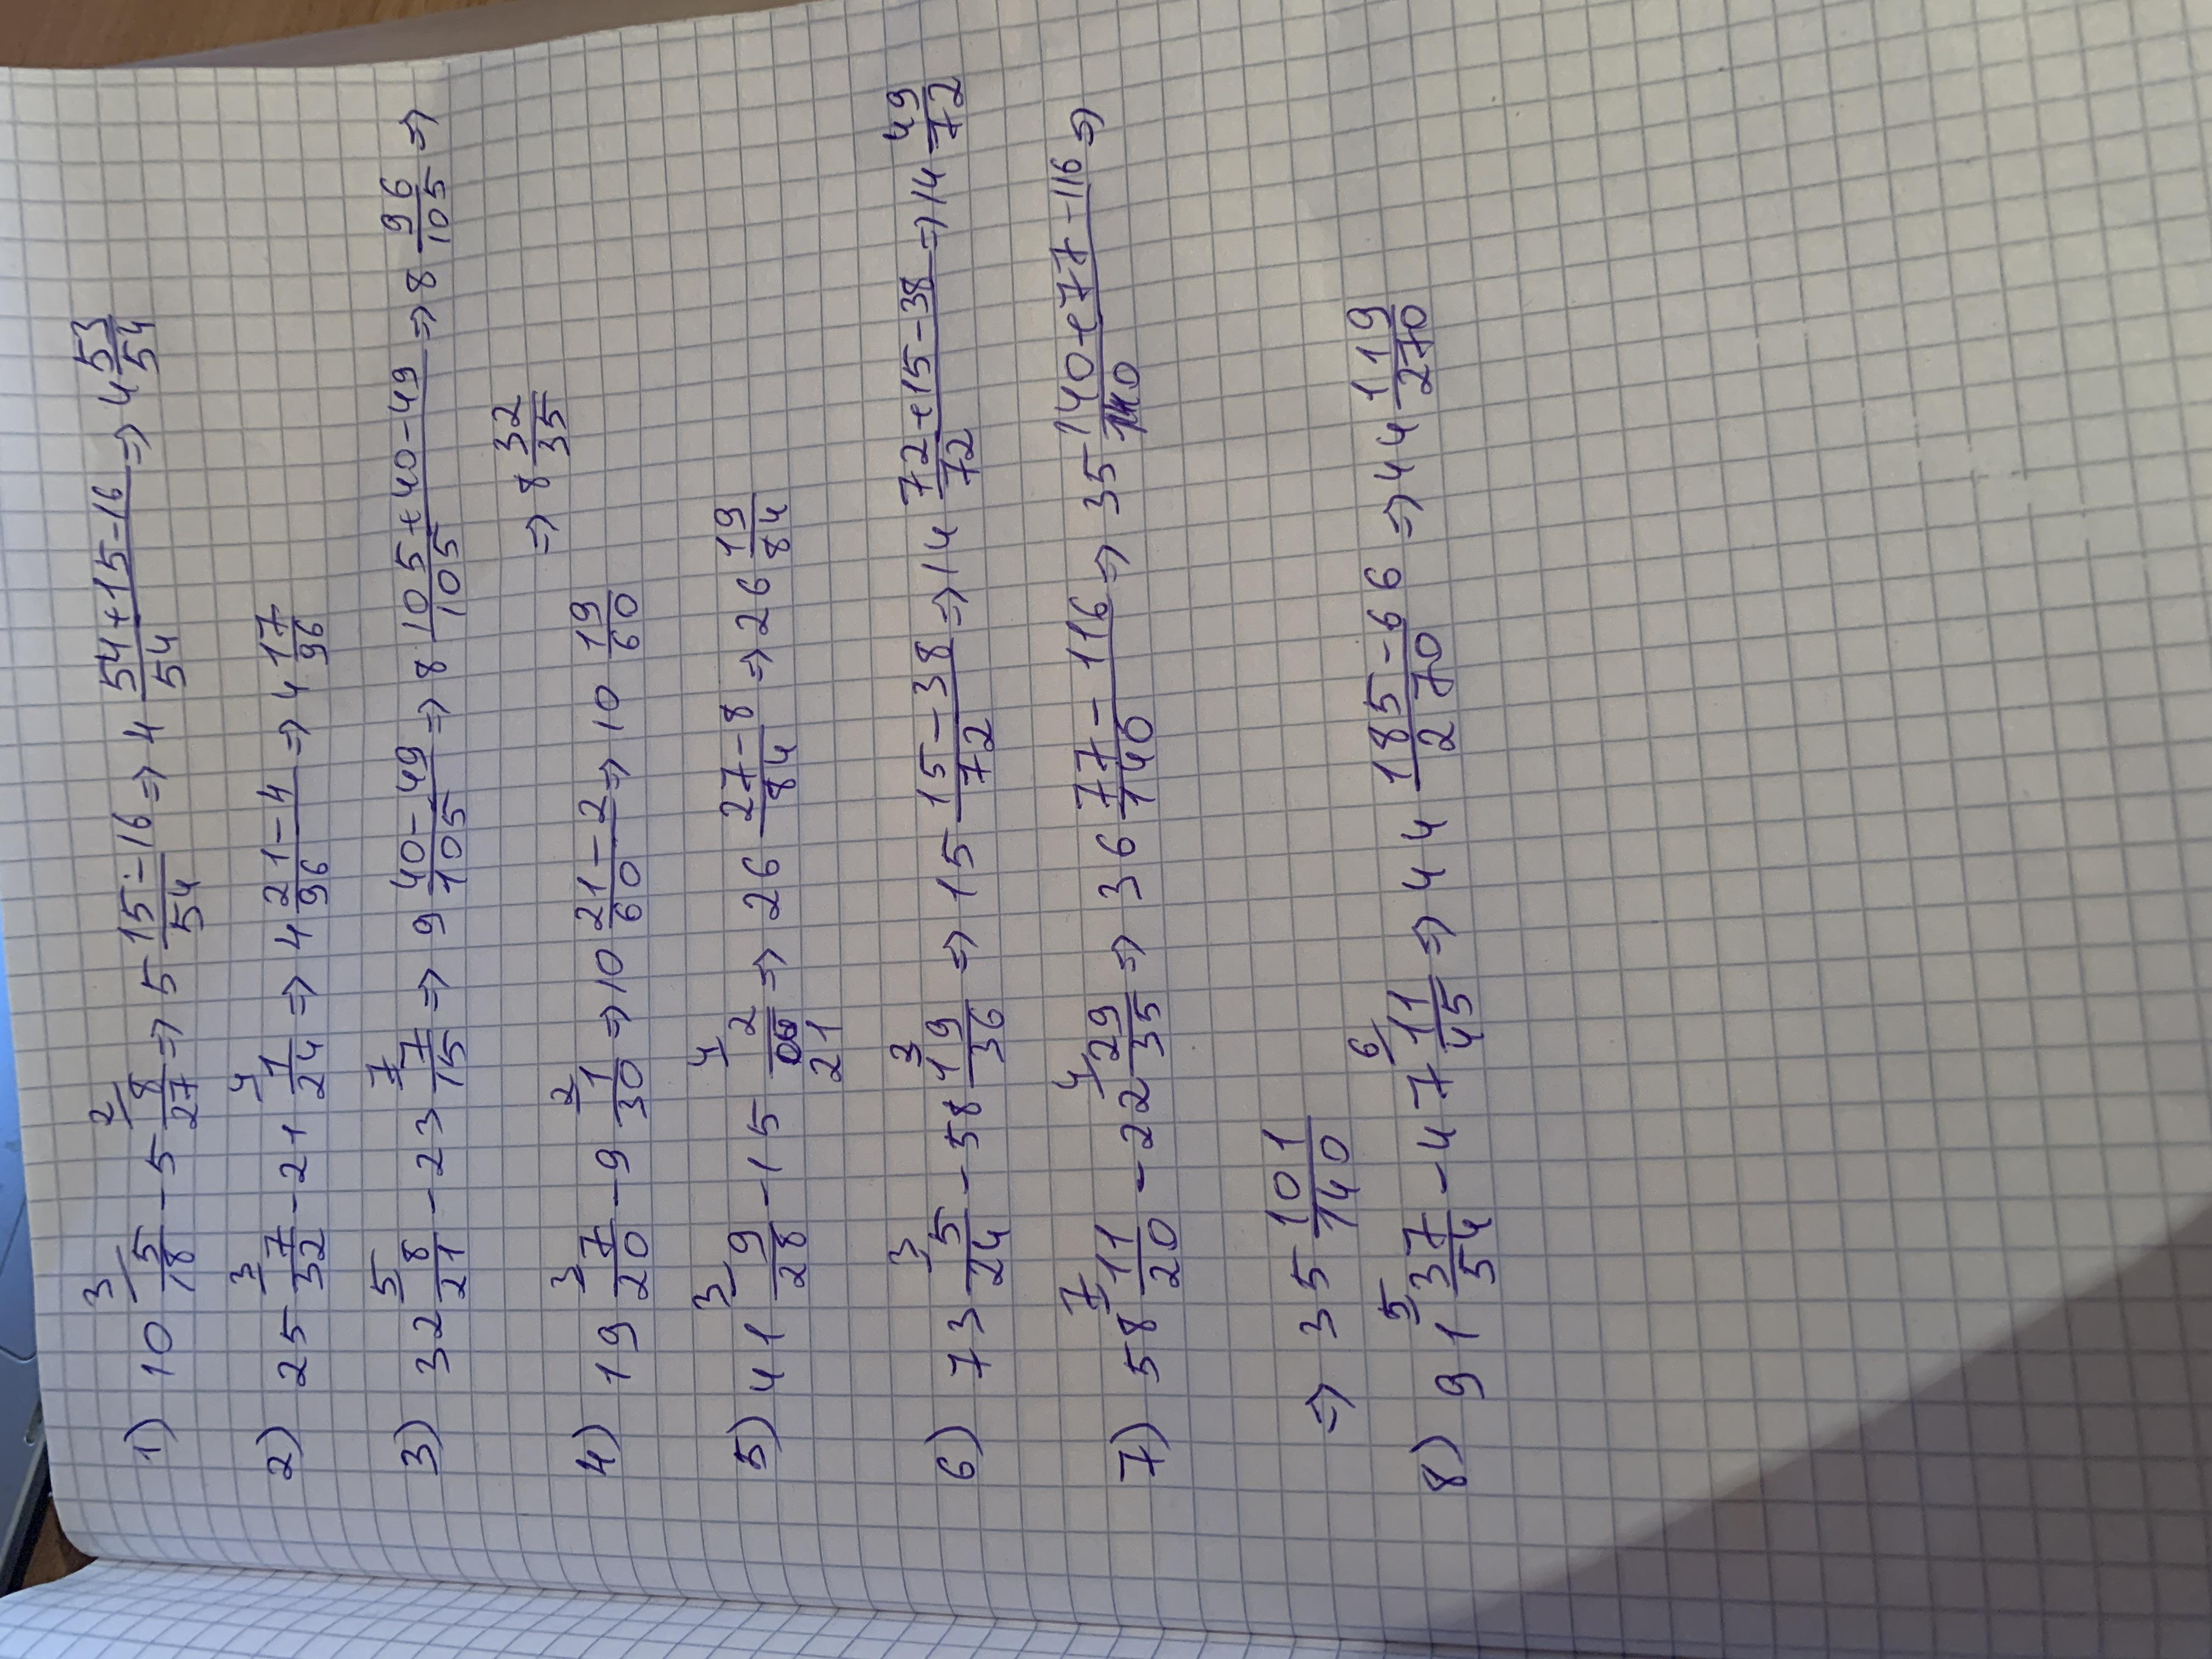 1) 10 3/ 5/18 - 5 2/ 8/27 => 5 (15-16)/54 => 4 (54+15-16)/54 => 4 53/54
2) 25 3/ 7/32 - 21 4/ 1/24 => 4 (21-4)/96 => 4 17/96
3) 32 5/ 8/21 - 23 7/ 7/15 => 9 (40-49)/105 => 8 (105+40-49)/105 => 8 96/105 =>
=> 8 32/35
4) 19 3/ 7/20 - 9 2/ 1/30 => 10 (21-2)/60 => 10 19/60
5) 41 3/ 9/28 - 15 4/ 2/21 => 26 (27-8)/84 => 26 19/84
6) 73 3/ 5/24 - 58 3/ 19/36 => 15 (15-38)/72 => 14 (72+15-38)/72 => 14 49/72
7) 58 7/ 11/20 - 22 4/ 29/35 => 36 (77-116)/140 => 35 (140+77-116)/140 =>
=> 35 101/140
8) 91 5/ 37/54 - 47 6/ 11/45 => 44 (185-66)/270 => 44 119/270